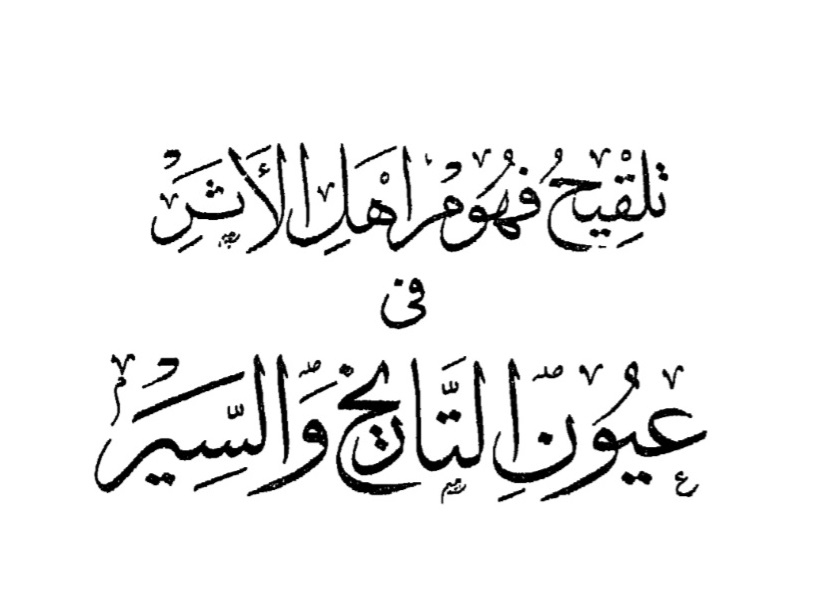 تَلْقِيحُ فُهُومِ أَهْلِ الأَثَرِ
فى
عُيُونِ التَّارِيخِ وَالسِّيَرِ